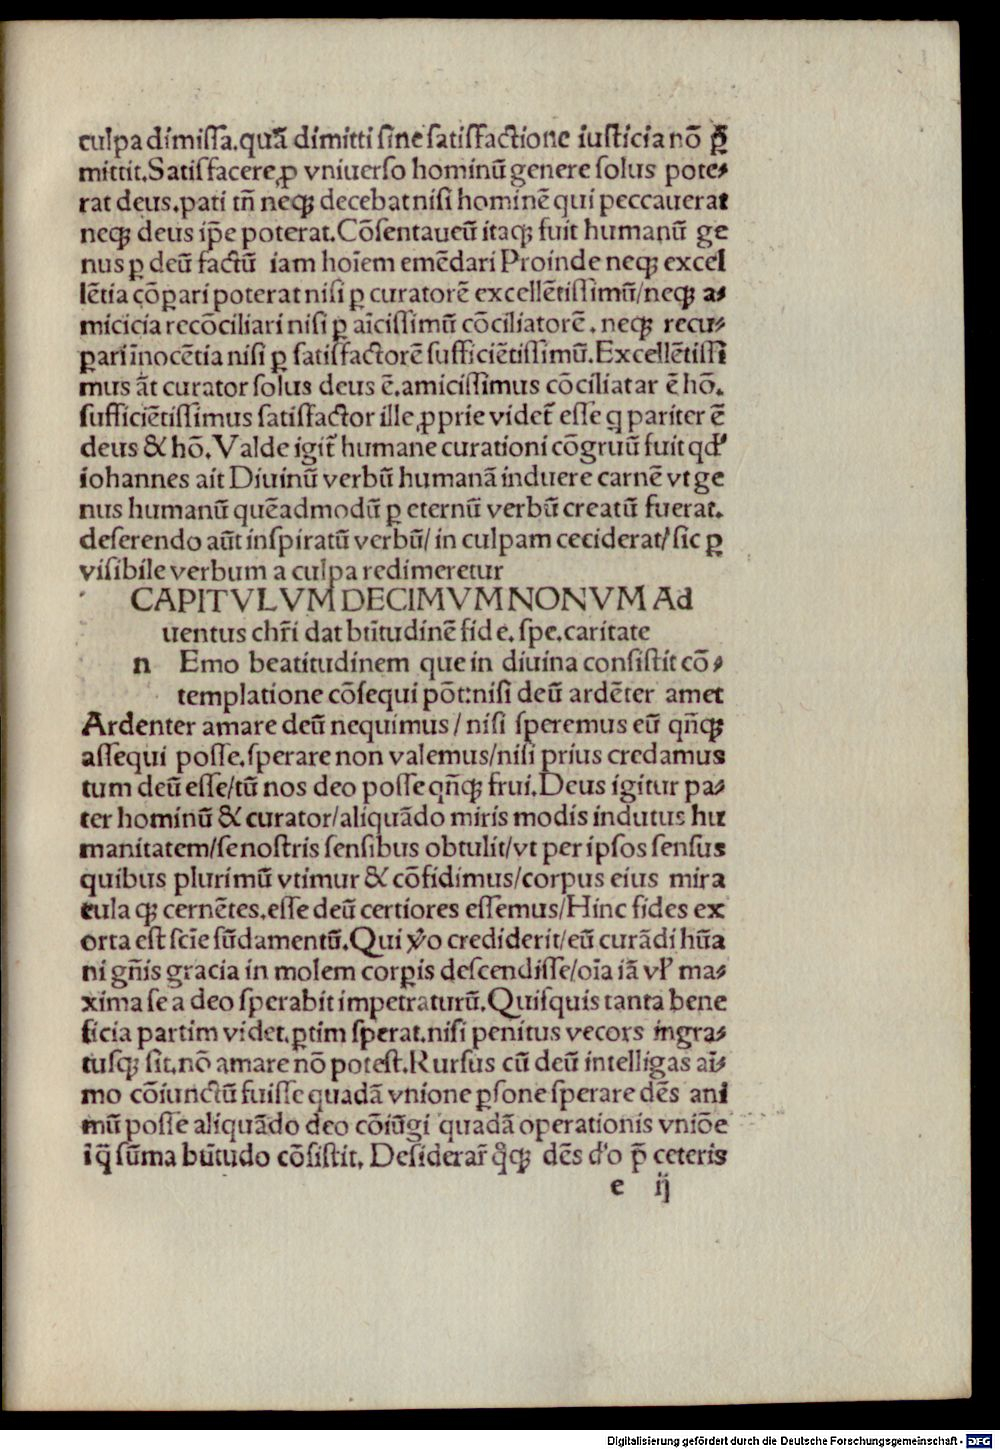 culpa dimissa.quā dimitti sine satisfactione iusticia nō ꝑ
mittit.Satisfacere ꝓ vniuerso hominū genere solus pote⸗
rat deus.pati tñ neqꝫ decebat nisi hominē qui peccauerat
neqꝫ deus ip̄e poterat.Cōsentaueū itaqꝫ fuit humanū ge
nus ꝑ deū factū iam hoīem emēdari Proinde neqꝫ excel
lētia cōꝑari poterat nisi ꝑ curatorē excellētissimū/neqꝫ a⸗
micicia recōciliari nisi ꝑ aīcissimū cōciliatorē.neqꝫ recu⸗
ꝑari īnocētia nisi ꝑ satisfactorē sufficiētissimū.Excellētissi
mus āt curator solus deus ē.amicissimus cōciliatar ē hō.
sufficiētissimus satisfactor ille ꝓprie videt̄ esse q pariter ē
deus & hō.Valde igit̄ humane curationi cōgruū fuit qd'
iohannes ait Diuinū verbū humanā induere carnē vt ge
nus humanū quēadmodū ꝑ eternū verbū creatū fuerat.
deserendo aūt inspiratū verbū/in culpam ceciderat/sic ꝑ
visibile verbum a culpa redimeretur
CAPITVLVM DECIMVM NONVM Ad
uentus chr̄i dat btītudinē fide.spe.caritate
n Emo beatitudinem que in diuina consistit cō⸗
templatione cōsequi pōt:nisi deū ardēter amet
Ardenter amare deū nequimus/nisi speremus eū qñqꝫ
assequi posse.sperare non valemus/nisi prius credamus
tum deū esse/tū nos deo posse qñqꝫ frui.Deus igitur pa⸗
ter hominū & curator/aliquādo miris modis indutus hu
manitatem/se nostris sensibus obtulit/vt per ipsos sensus
quibus plurimū vtimur & cōfidimus/corpus eius mira
cula qꝫ cernētes.esse deū certiores essemus/Hinc fides ex
orta est scīe fūdamentū.Qui v̊o crediderit/eū curādi hūa
ni gñis gracia in molem corꝑis descendisse/oīa iā vl' ma⸗
xima se a deo sperabit impetraturū.Quisquis tanta bene
ficia partim videt.ꝑtim sperat.nisi penitus vecors ingra⸗
tusqꝫ sit.nō amare nō potest.Rursus cū deū intelligas aī⸗
mo cōiunctū fuisse quadā vnione ꝑsone sperare dēs ani
mū posse aliquādo deo cōiūgi quadā operationis vniōe
i q̄ sūma būtudo cōsistit. Desiderar̄ q̊qꝫ dēs d'o p̄ ceteris
e ij
Digitalisierung gefördert durch die Deutsche Forschungsgemeinschaft - DFG